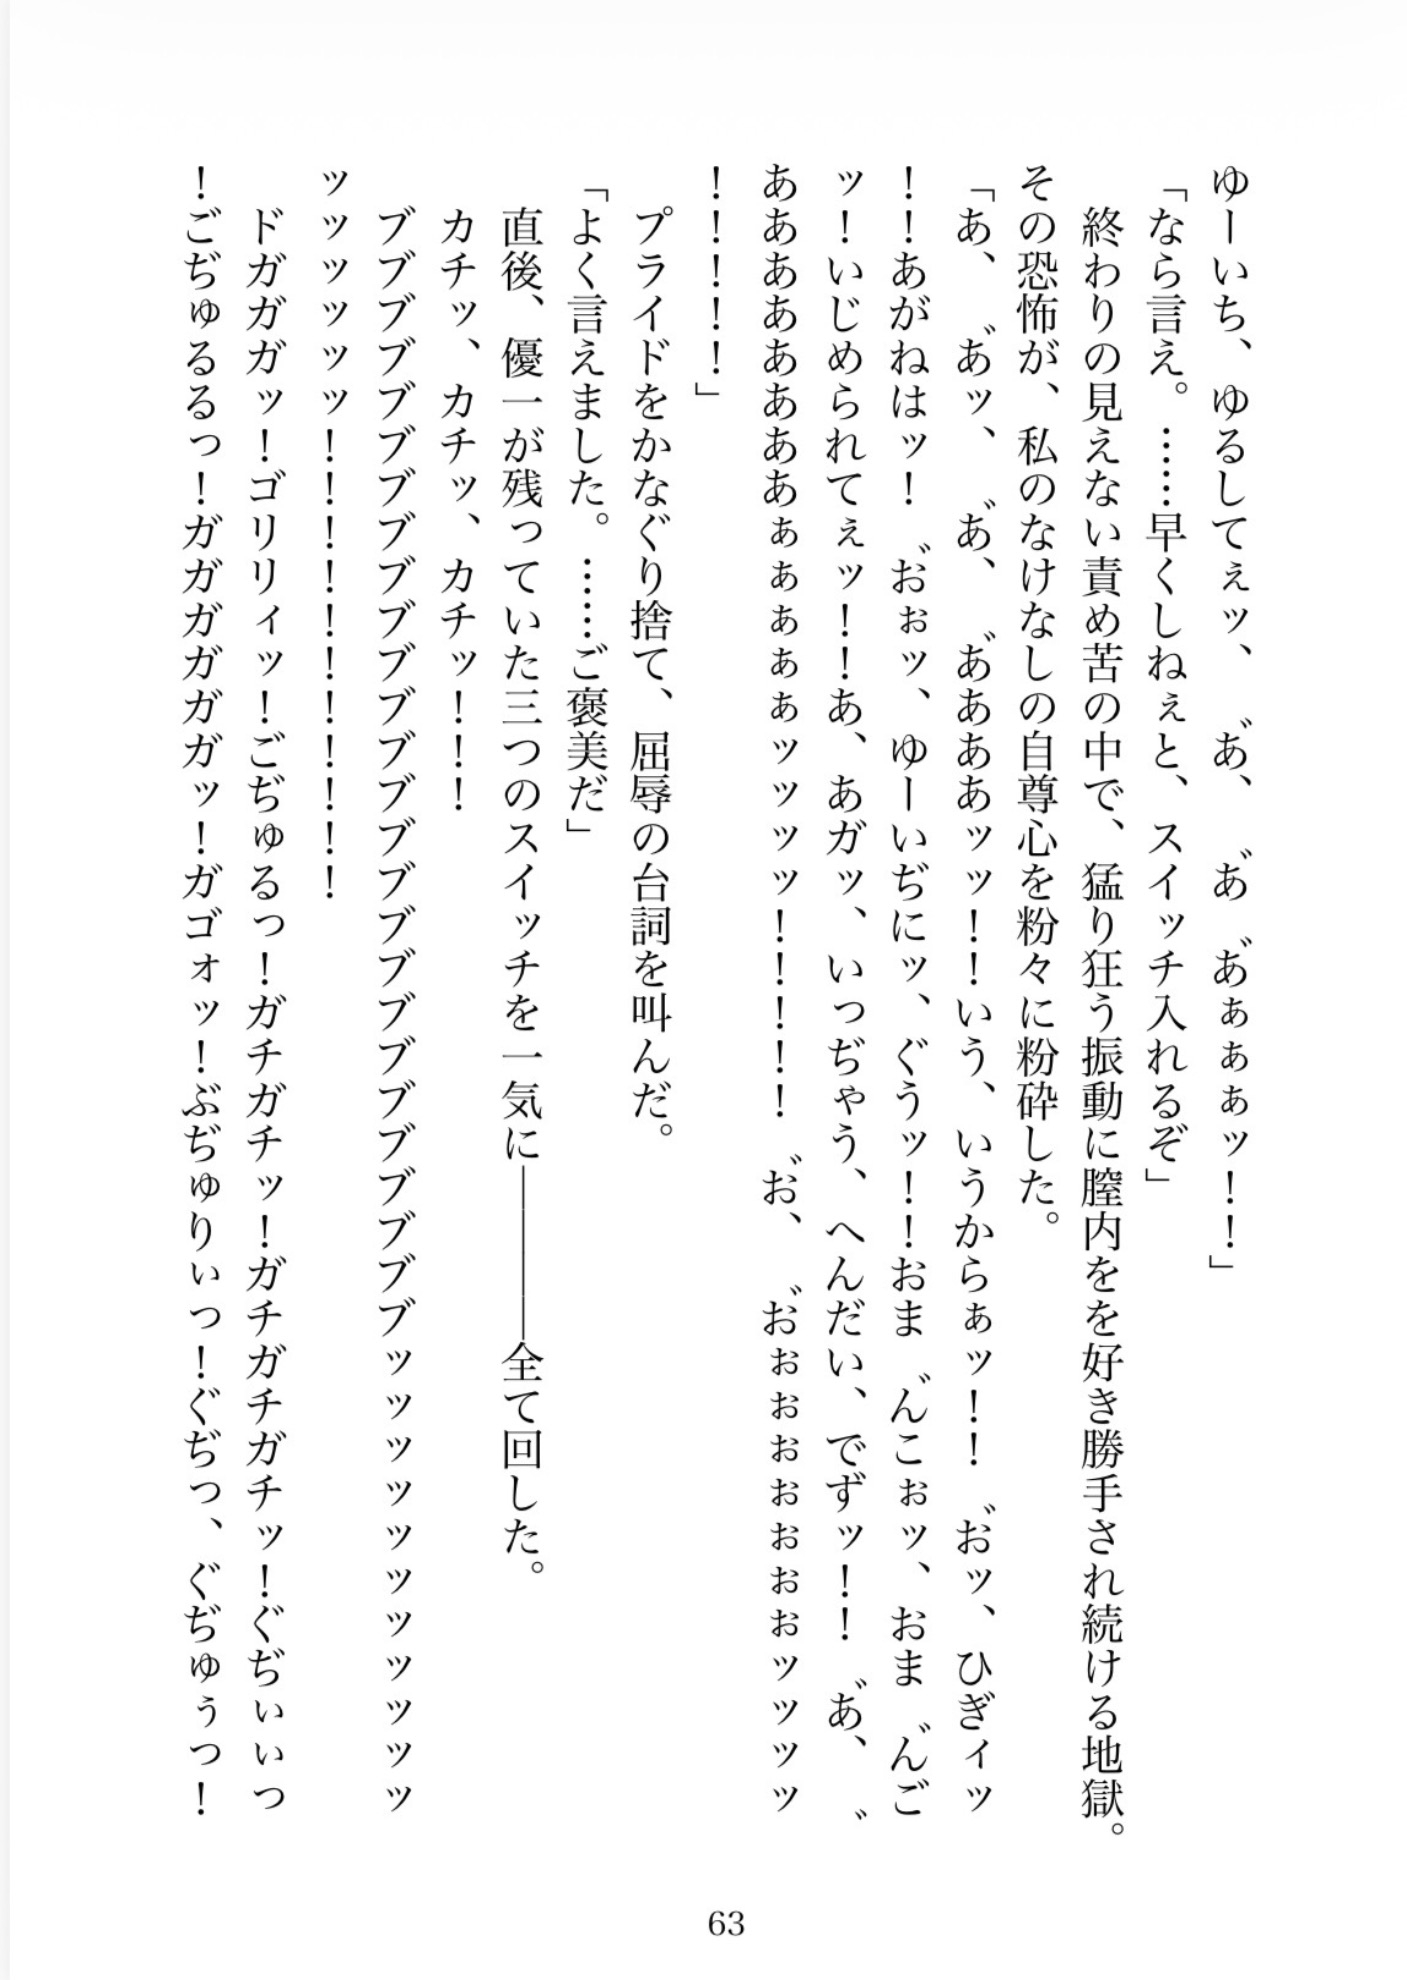 ゆーいち、ゆるしてぇッ、あ゛、あ゛あ゛ぁぁぁッ！！」
「なら言え。……早くしねぇと、スイッチ入れるぞ」
　終わりの見えない責め苦の中で、猛り狂う振動に膣内をを好き勝手され続ける地獄。
その恐怖が、私のなけなしの自尊心を粉々に粉砕した。
「あ、あ゛ッ、あ゛、あ゛あああッッ！！いう、いうからぁッ！！お゛ッ、ひぎィッ
！！あがねはッ！お゛ぉッ、ゆーいぢにッ、ぐうッ！！おま゛んこぉッ、おま゛んご
ッ！いじめられてぇッ！！あ、あガッ、いっぢゃう、へんだい、でずッ！！あ゛、゛
ああああああああぁぁぁぁぁッッッッ！！！！！お゛、お゛ぉぉぉぉぉぉぉッッッッ
！！！！！」
　プライドをかなぐり捨て、屈辱の台詞を叫んだ。
「よく言えました。……ご褒美だ」
　直後、優一が残っていた三つのスイッチを一気に――――全て回した。
　カチッ、カチッ、カチッ！！！
　ブブブブブブブブブブブブブブブブブブブブブブブブブブッッッッッッッッッッッ
ッッッッッッ！！！！！！！！！！！
　ドガガガッ！ゴリリィッ！ごぢゅるっ！ガチガチッ！ガチガチガチッ！ぐぢぃぃっ
！ごぢゅるるっ！ガガガガガガッ！ガゴォッ！ぶぢゅりぃっ！ぐぢっ、ぐぢゅぅっ！
63